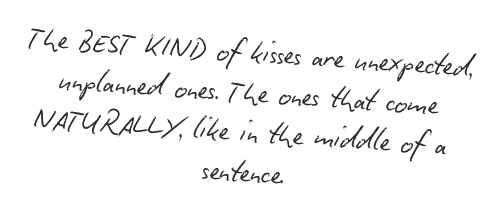 The BEST KIND of kisses are unexpected,
unplanned ones. The ones that come
NATURALLY, like in the middle of a
sentence.